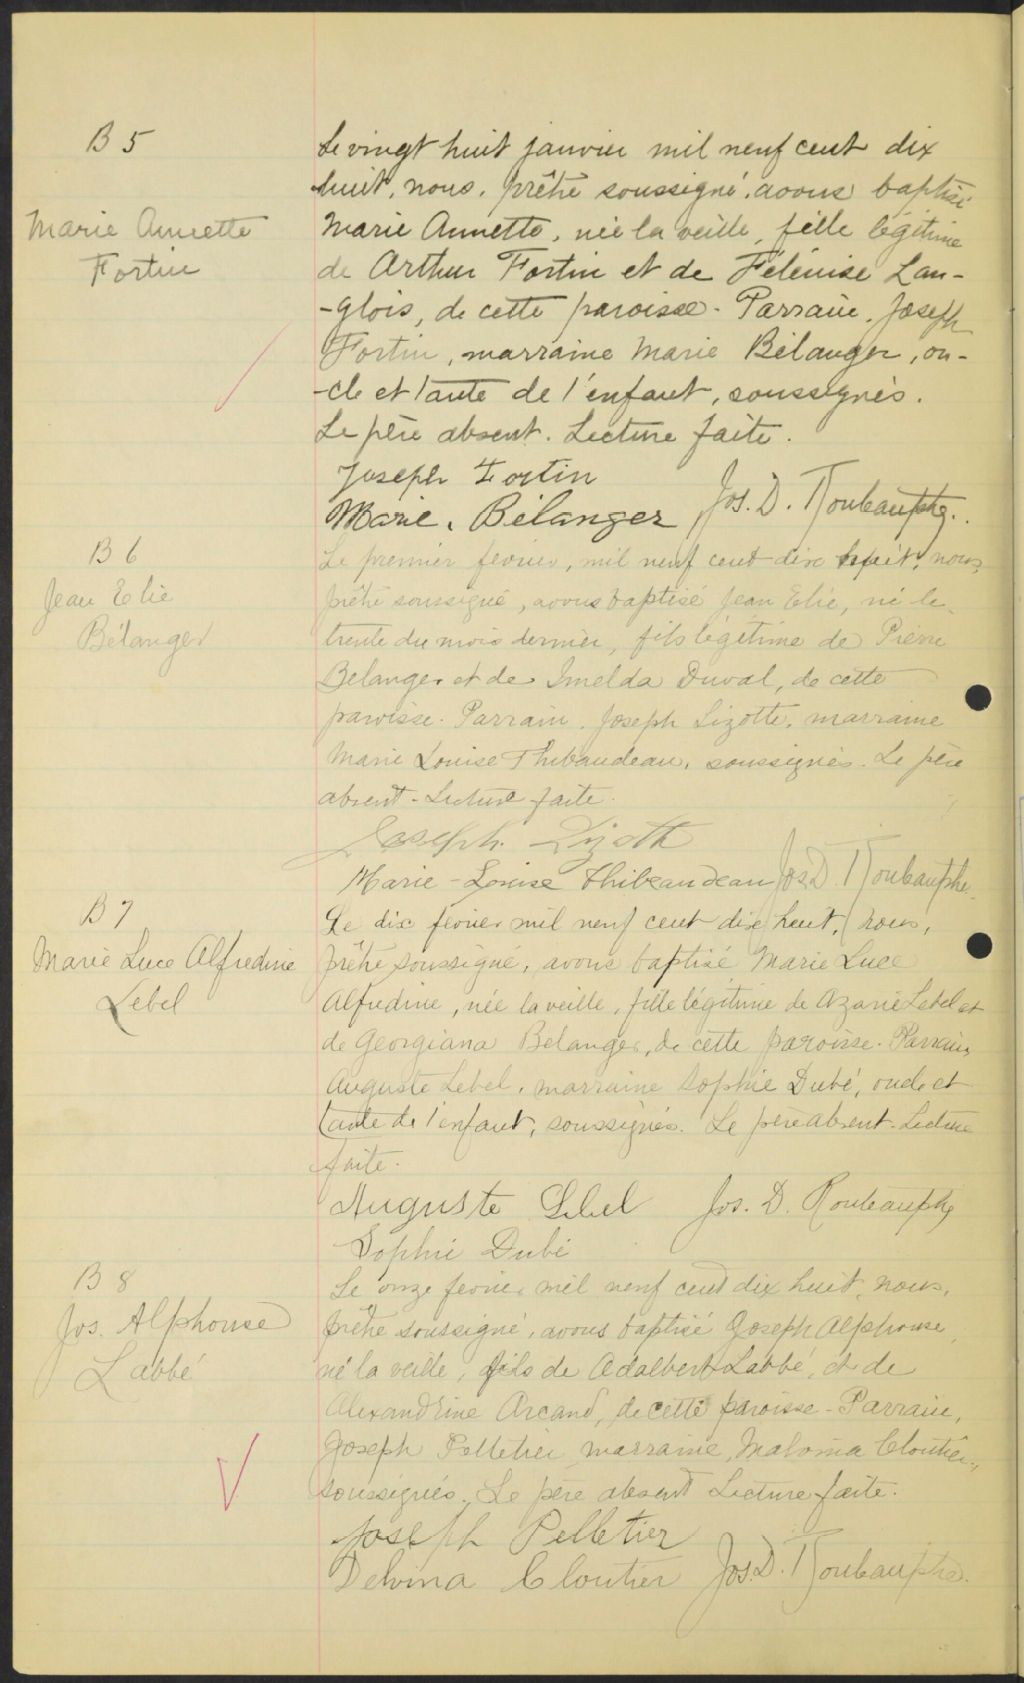 B 5
Marie Annette
Fortin
Le vingt huit janvier mil neuf cent dix
huit, nous, prêtre soussigné, avons baptisé
Marie Annette, née la veille, fille légitime
de Arthur Fortin et de Félénise Lan-
-glois, de cette paroisse. Parrain, Joseph
Fortin, marraine Marie Bélanger, on-
-cle et tante de l'enfant, soussignés.
Le père absent. Lecture faite.
Joseph Fortin
Marie. Bélanger Jos. D.
B 6
Jean Elie
Bélanger
Le premier fevrier, mil neuf cent dix huit, nous,
prêtre soussigné, avons baptisé Jean Elie, né le
trente du mois dernier, fils légitime de Pierre
Belanger et de Imelda Duval, de cette
paroisse. Parrain, Joseph Lizotte, marraine
Marie Louise Thibaudeau, soussignés. Le père
absent. Lecture faite.
Joseph Lizotte
Marie-Louise Thibeaudeau Jos. D.
B 7
Marie Luce Alfredine
Lebel
Le dix fevrier mil neuf cent dix huit, nous,
prêtre soussigné, avons baptisé Marie Luce
Alfredine, née la veille, fille légitime de Azarie Lebel et
de Georgiana Belanger, de cette paroisse. Parrain,
Auguste Lebel, marraine Sophie Dubé, oncle et
tante de l'enfant, soussignés. Le père absent. Lecture
faite.
Auguste Lebel Jos. D.
Sophie Dubé
B 8
Jos. Alphonse
Labbé
Le onze fevrier mil neuf cent dix huit, nous,
prêtre soussigné, avons baptisé Joseph Alphonse,
né la veille, fils de Adalbert Labbé, et de
Alexandrine Arcand, de cette paroisse - Parrain,
Joseph Pelletier, marraine, Malvina Cloutier,
soussignés. Le père absent Lecture faite.
Joseph Pelletier
Delvina Cloutier Jos. D.